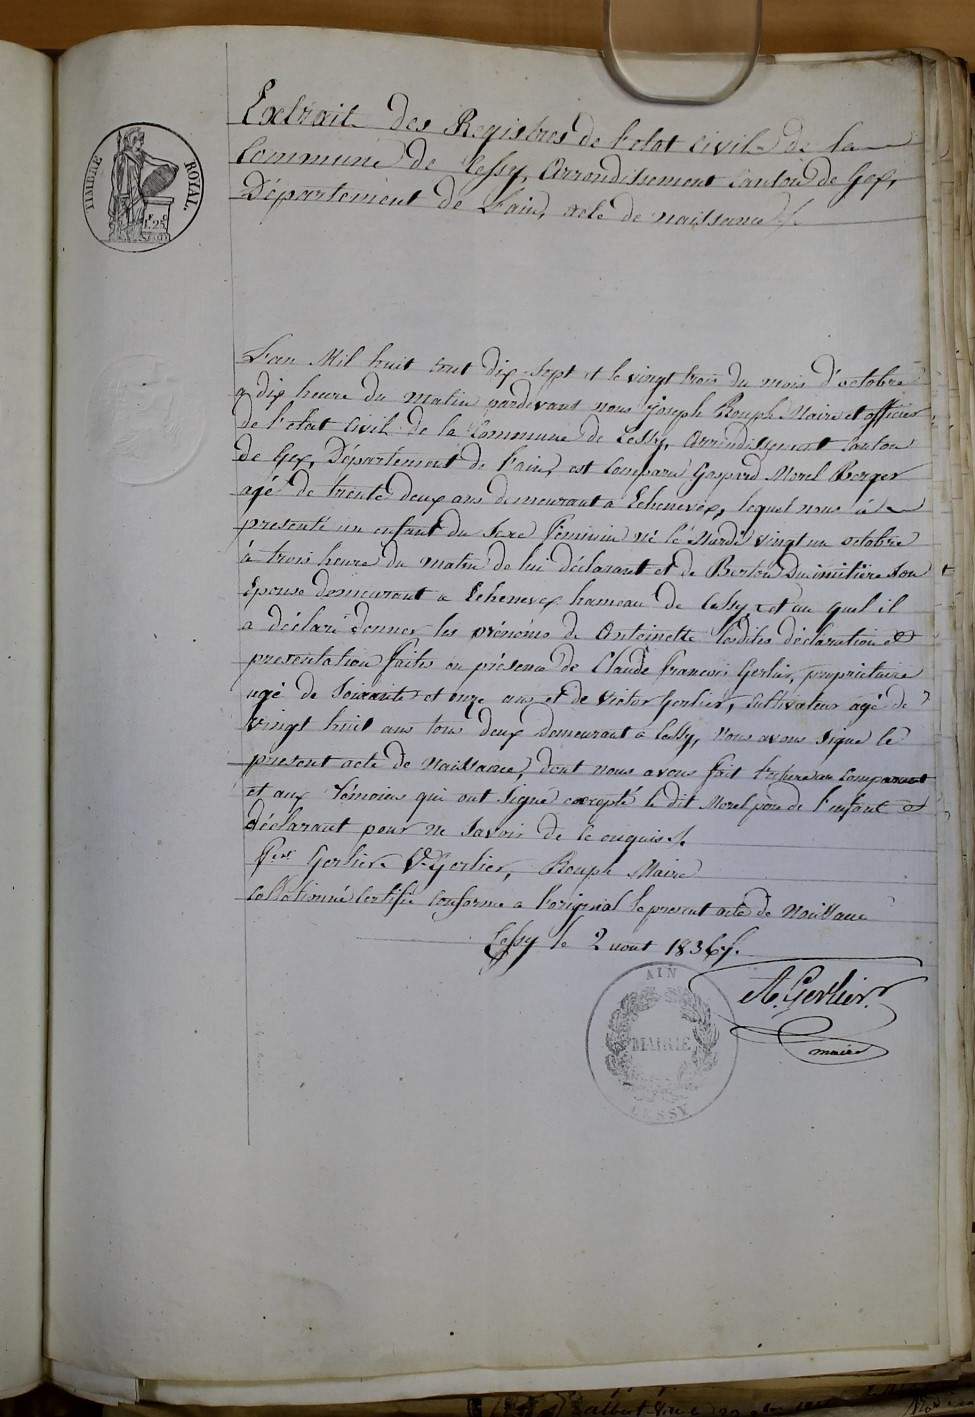 TIMBRE ROYAL.
1.25
Extrait des Registres de l'etat civil de la
Commune de Cessy, Arrondissement Canton de Gex,
Département de l'ain, acte de naissance
L'an Mil huit cent dix-sept et le vingt trois du mois d'octobre
a dix heure du matin pardevant nous Joseph Rouph Maire et officier
de l'etat civil de la Commune de Cessy, Arrondissement Canton
de Gex, Département de l'ain, est Comparu Gaspard Morel Berger
agé de trente deux ans demeurant a Echenevex, lequel nous à
presenté un enfant du sexe féminin né le Mardi vingt un octobre
à trois heure du matin de lui déclarant et de Son
Epouse demeurant a Echenevex hameau de Cessy, et au quel il
a déclaré donner les prénoms de Antoinette lesdites déclaration et
presentation faites en présence de Claude françois Gerlier, propriétaire
agé de Soixante et onze ans et de Victor Gerlier, Cultivateur agé de
vingt huit ans tous deux demeurant à Cessy, Nous avons signé le
present acte de Naissance, dont nous avons fait lecture au Comparant
et aux témoins qui ont signé excepté le dit Morel père de l'enfant et
déclarant pour ne savoir de ce enquis
Gerlier V. Gerlier, Rouph Maire
Collationné Certifié Conforme a l'original le present acte de Naissance
Cessy le 2 aout 1836
A. Gerlier
maire
AIN
MAIRIE
CESSY